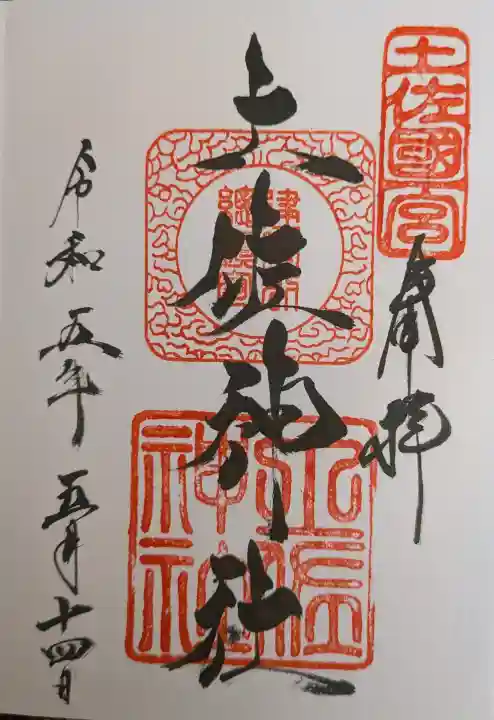 土佐國一宮
奉拝
土佐神社
土佐
神社
令和五年五月十四日